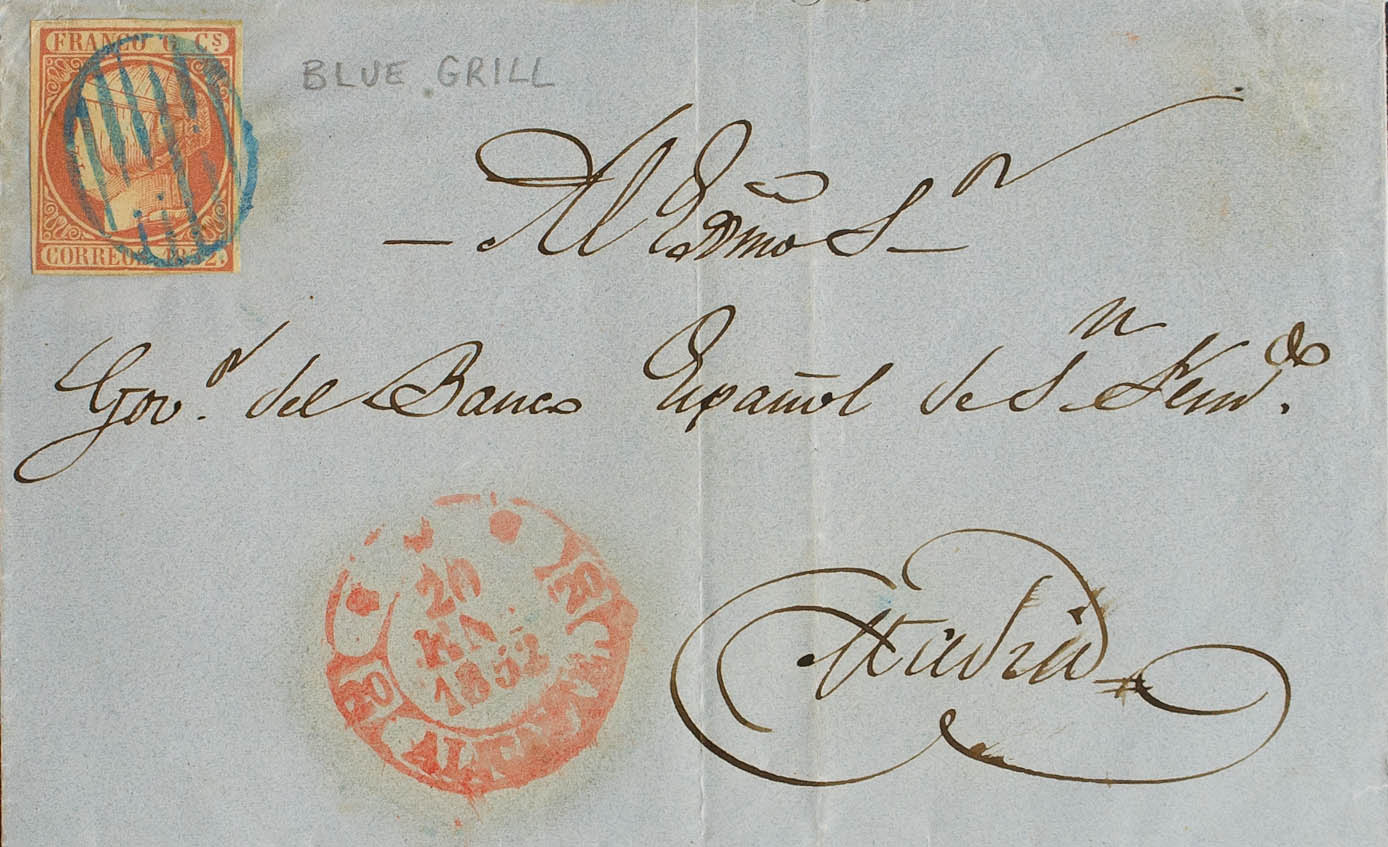 FRANCO 6 Cs
CORREOS 1852.
BLUE GRILL
Al Exmo Sr
Govr. del Banco Español de Sn Ferndo.
20
MA
1852
Madrid